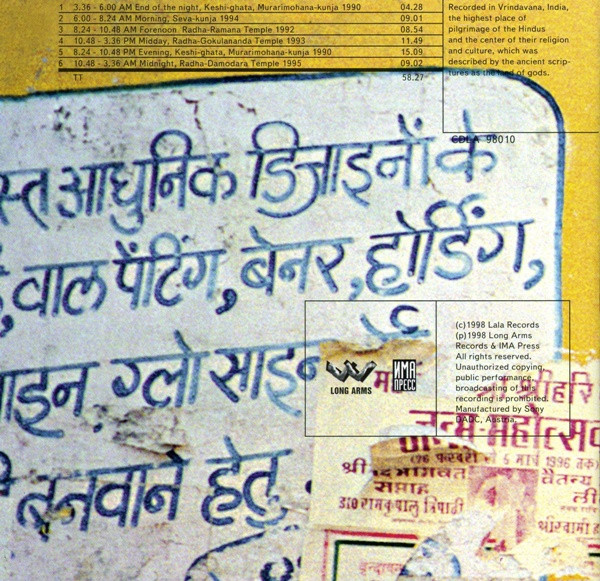 1 3.36 - 6.00 AM End of the night, Keshi-ghata, Murarimohana-kunja 1990 04.28
2 6:00 - 8.24 AM Morning, Seva-kunja 1994 09.01
3 8.24 - 10.48 AM Forenoon, Radha-Ramana Temple 1992 08.54
4 10.48 - 3.36 PM Midday, Radha-Gokulananda Temple 1993 11.49
5 8.24 - 10.48 PM Evening, Keshi-ghata, Murarimohana-kunja 1990 15.09
6 10.48 - 3.36 AM Midnight, Radha-Damodara Temple 1995 09.02
TT 58.27
Recorded in Vrindavana, India,
the highest place of
pilgrimage of the Hindus
and the center of their religion
and culture, which was
described by the ancient scrip-
tures as the land of gods.
CDLA 98010
स्त आधुनिक डिजाइनों के
वाल पेंटिंग, बेनर, होर्डिंग,
ग्लो साइन
बनवाने हेतु
LONG ARMS
ИМА
ПРЕСС
(c)1998 Lala Records
(p)1998 Long Arms
Records & IMA Press
All rights reserved.
Unauthorized copying,
public performance,
broadcasting of this
recording is prohibited.
Manufactured by Sony
DADC, Austria.
श्रीहरि
जन्म-महोत्सव
(26 फरवरी से 5 मार्च 1996 तक)
श्रीमद्भागवत
सप्ताह
चैतन्य
डा० रामकृपालु त्रिपाठी